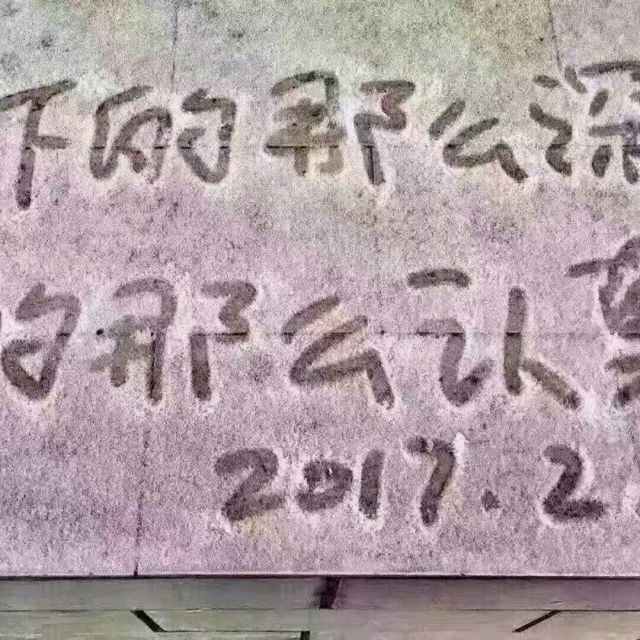 下的那么深
的那么认真
2017.2.